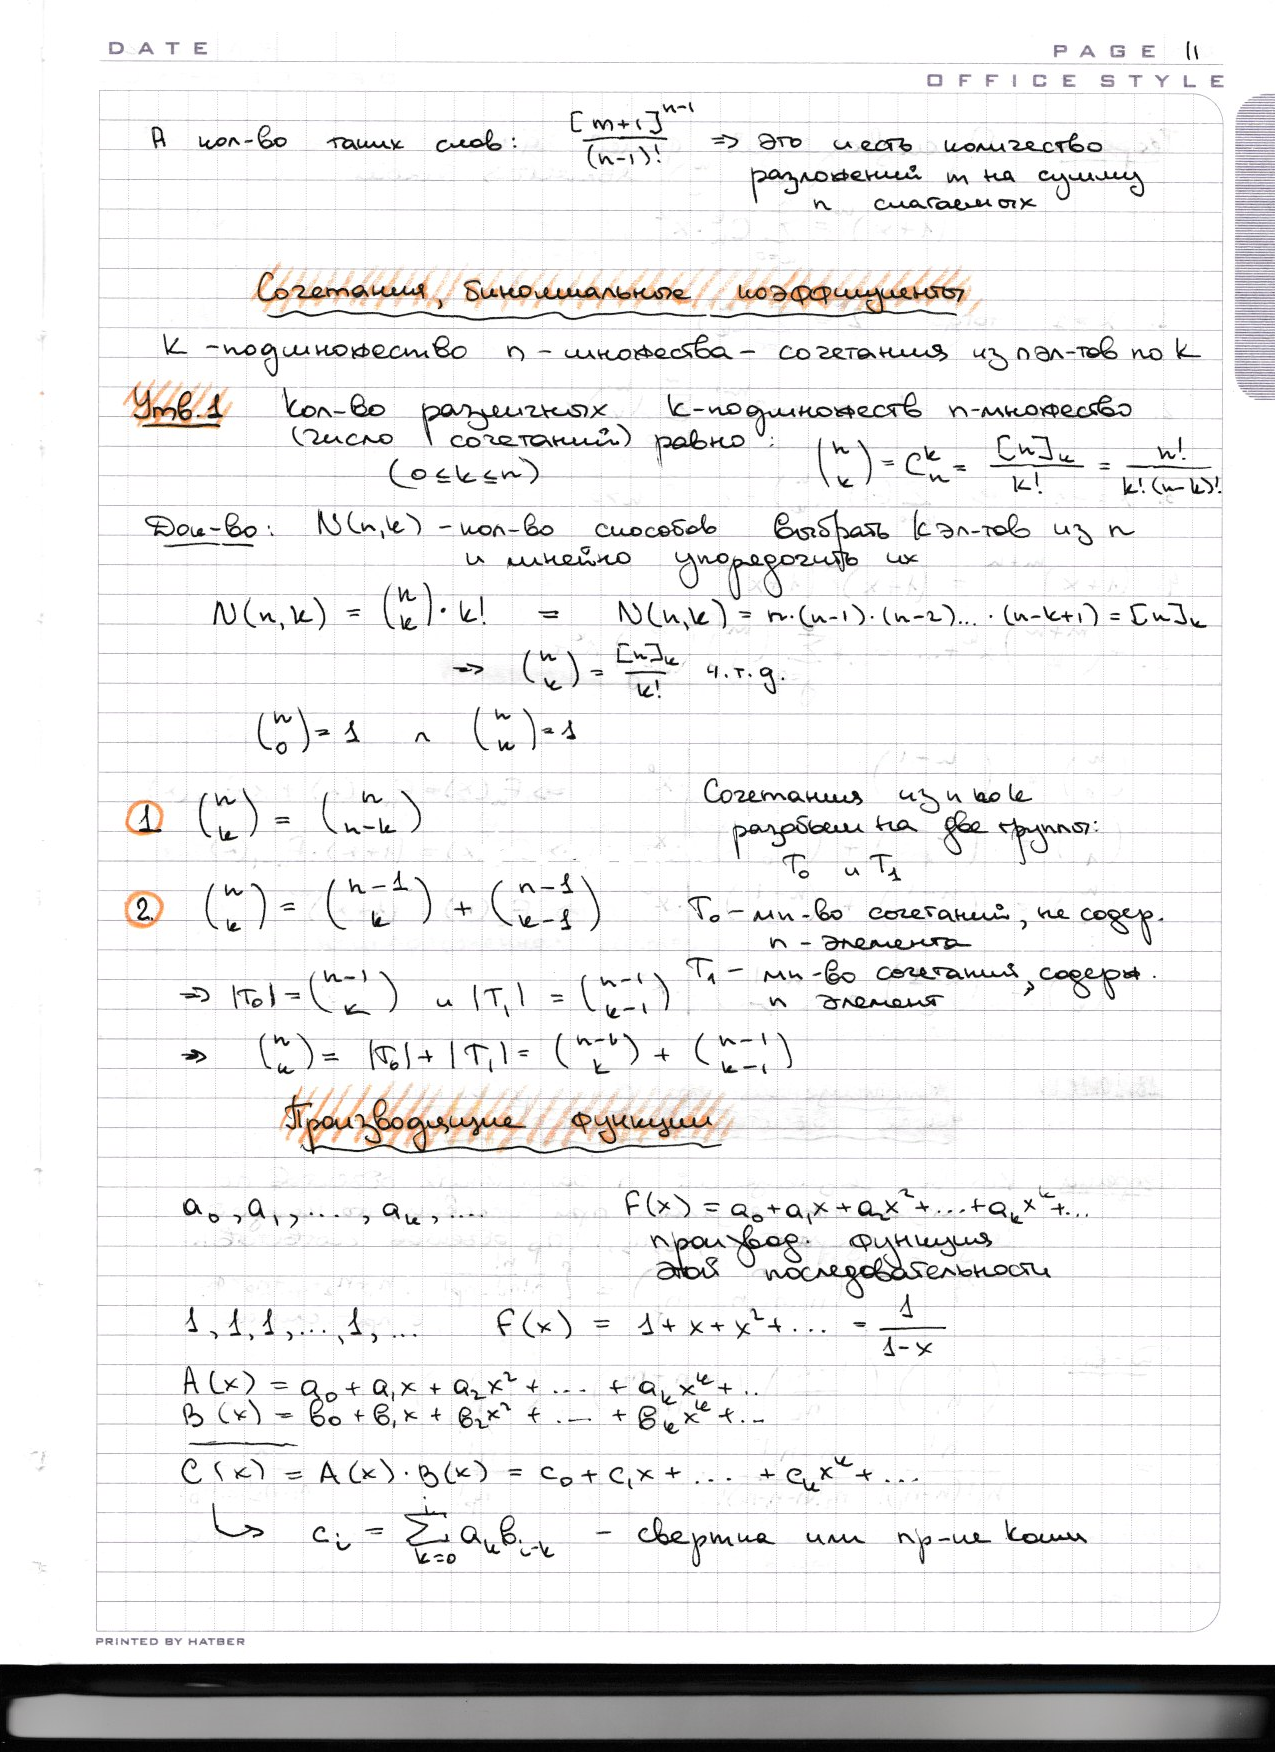 DATE
PAGE 11
OFFICE STYLE
А кол-во таких слов: [m+1]^{n-1}/(n-1)! => это и есть количество
разложений m на сумму
n слагаемых
Сочетания, биномиальные коэффициенты
k -подмножество n - множества - сочетания из n эл-тов по k
Утв.1 Кол-во различных k-подмножеств n-множество
(число сочетаний) равно: (n k) = C_n^k = [n]_k/k! = n!/(k!(n-k)!)
(0≤k≤n)
Док-во: N(n,k) - кол-во способов выбрать k эл-тов из n
и линейно упорядочить их
N(n,k) = (n k)·k! = N(n,k) = n·(n-1)·(n-2)...·(n-k+1) = [n]_k
=> (n k) = [n]_k/k! ч.т.д.
(n 0) = 1 ∧ (n n) = 1
1 (n k) = (n n-k)
Сочетания из n по k
разобьем на две группы:
T₀ и T₁
2. (n k) = (n-1 k) + (n-1 k-1)
T₀ - мн-во сочетаний, не содер.
n - элемента
T₁ - мн-во сочетаний, содерж.
n элемент
=> |T₀| = (n-1 k) и |T₁| = (n-1 k-1)
=> (n k) = |T₀| + |T₁| = (n-1 k) + (n-1 k-1)
Производящие функции
a₀, a₁, ..., a_k, ....
F(x) = a₀+a₁x+a₂x²+...+a_kx^k+...
производ. функция
этой последовательности
1, 1, 1, ..., 1, ... F(x) = 1 + x + x² + ... = 1/(1-x)
A(x) = a₀ + a₁x + a₂x² + ... + a_kx^k + ..
B(x) = b₀ + b₁x + b₂x² + ... + b_kx^k + ...
C(x) = A(x)·B(x) = c₀ + c₁x + ... + c_kx^k + ...
↳ c_i = ∑_{k=0}^{i} a_k b_{i-k} - свертка или пр-ие Коши
PRINTED BY HATBER